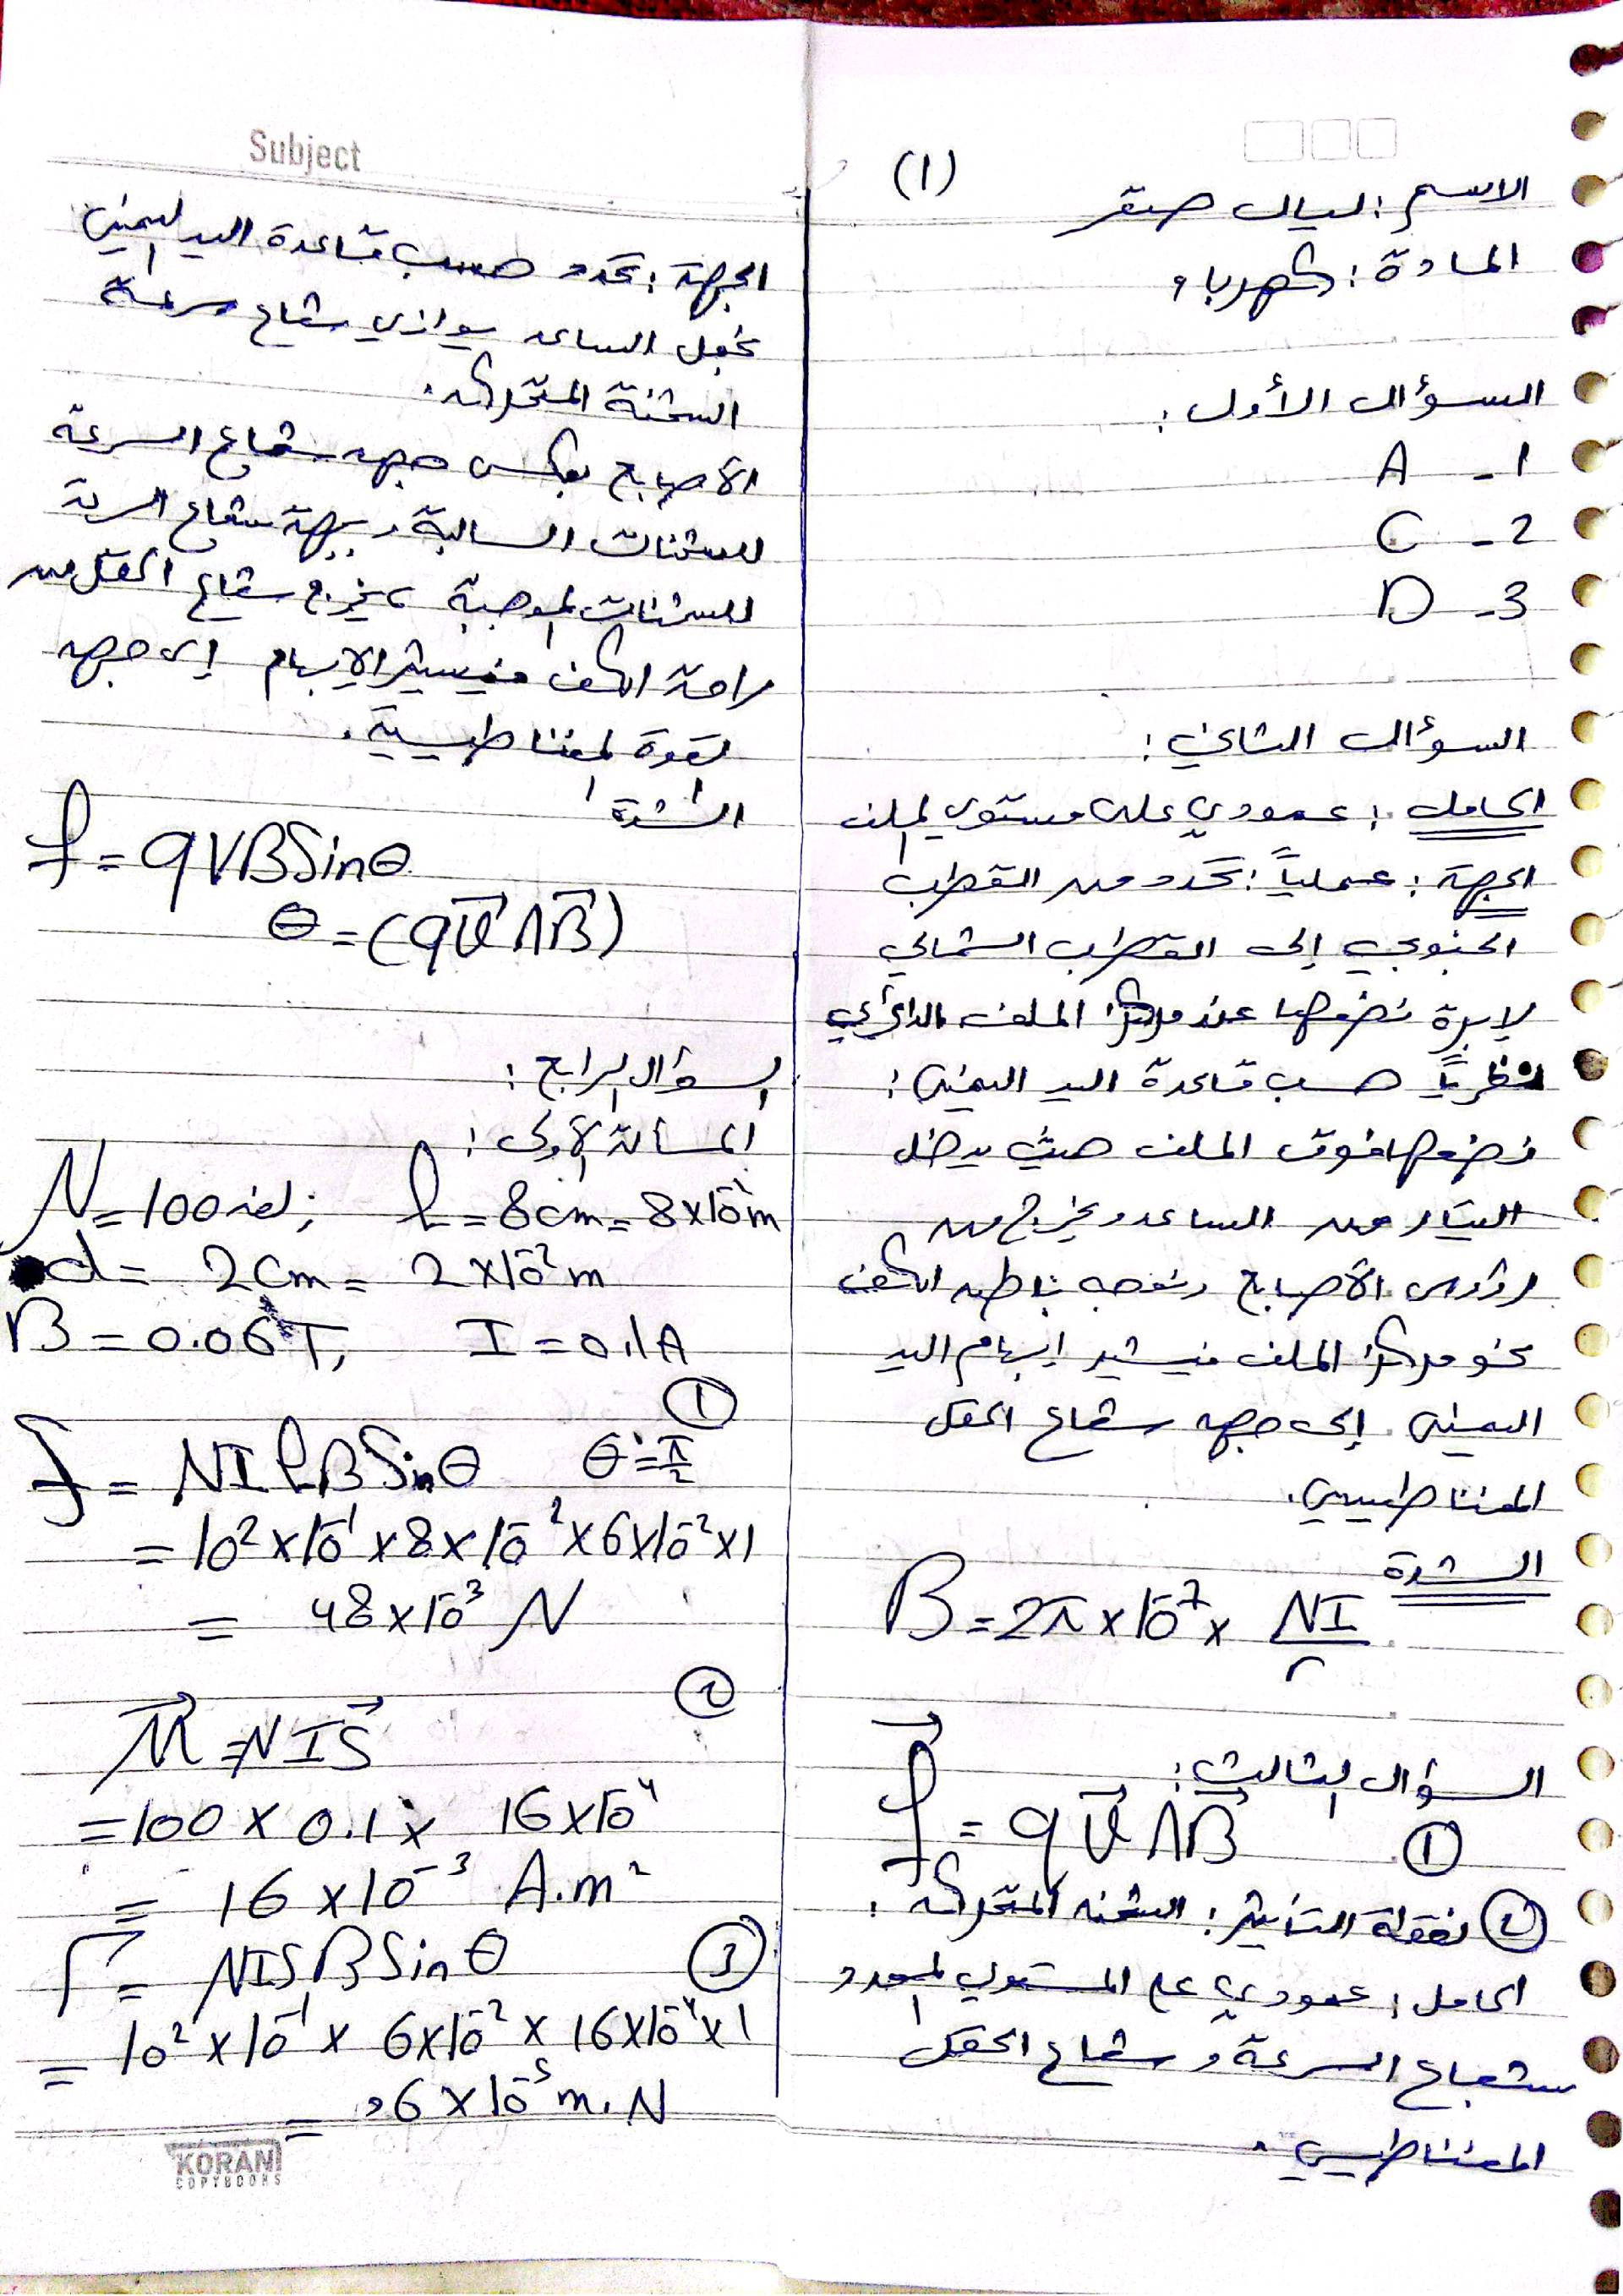 (1)
الاسم : ليال صقر
المادة : كهرباء
السؤال الأول :
1 - A
2 - C
3 - D
السؤال الثاني :
الحامل : عمودي على مستوي الملف
الجهة : عملياً : تحدد من القطب
الجنوبي إلى القطب الشمالي
لإبرة نضعها عند مركز الملف الدائري
نظرياً حسب قاعدة اليد اليمنى :
نضعها فوق الملف حيث يدخل
التيار من الساعد ويخرج من
رؤوس الأصابع ونوجه باطن الكف
نحو مركز الملف فيشير إبهام اليد
اليمنى إلى جهة شعاع الحقل
المغناطيسي .
الشدة
B = 2π × 10⁻⁷ × NI / r
السؤال الثالث :
① f⃗ = q v⃗ ∧ B⃗
② نقطة التأثير : الشحنة المتحركة :
الحامل : عمودي على المستوي المحدد و
شعاع السرعة و شعاع الحقل
المغناطيسي .
Subject
الجهة : تحدد حسب قاعدة اليد اليمنى
نجعل الساعد يوازي شعاع سرعة
الشحنة المتحركة .
الأصابع بعكس جهة شعاع السرعة
للشحنات السالبة و بجهة شعاع السرعة
للشحنات الموجبة ، يخرج شعاع الحقل من
راحة الكف فيشير الإبهام إلى جهة
القوة المغناطيسية .
الشدة
f = qVB Sinθ
θ = (q v⃗ ∧ B⃗)
السؤال الرابع :
المسألة الأولى :
N = 100 لفة ; l = 8cm = 8×10⁻²m
d = 2cm = 2×10⁻²m
B = 0.06T, I = 0.1A
①
f = NIlB Sinθ θ = π/2
= 10² × 10⁻¹ × 8 × 10⁻² × 6×10⁻² × 1
= 48 × 10⁻³ N
②
M⃗ = NIS⃗
= 100 × 0.1 × 16×10⁻⁴
= 16 × 10⁻³ A.m²
③
Γ = NISB Sinθ
= 10² × 10⁻¹ × 6×10⁻² × 16×10⁻⁴ × 1
= 96 × 10⁻⁵ m.N
KORANI
COPYBOOKS